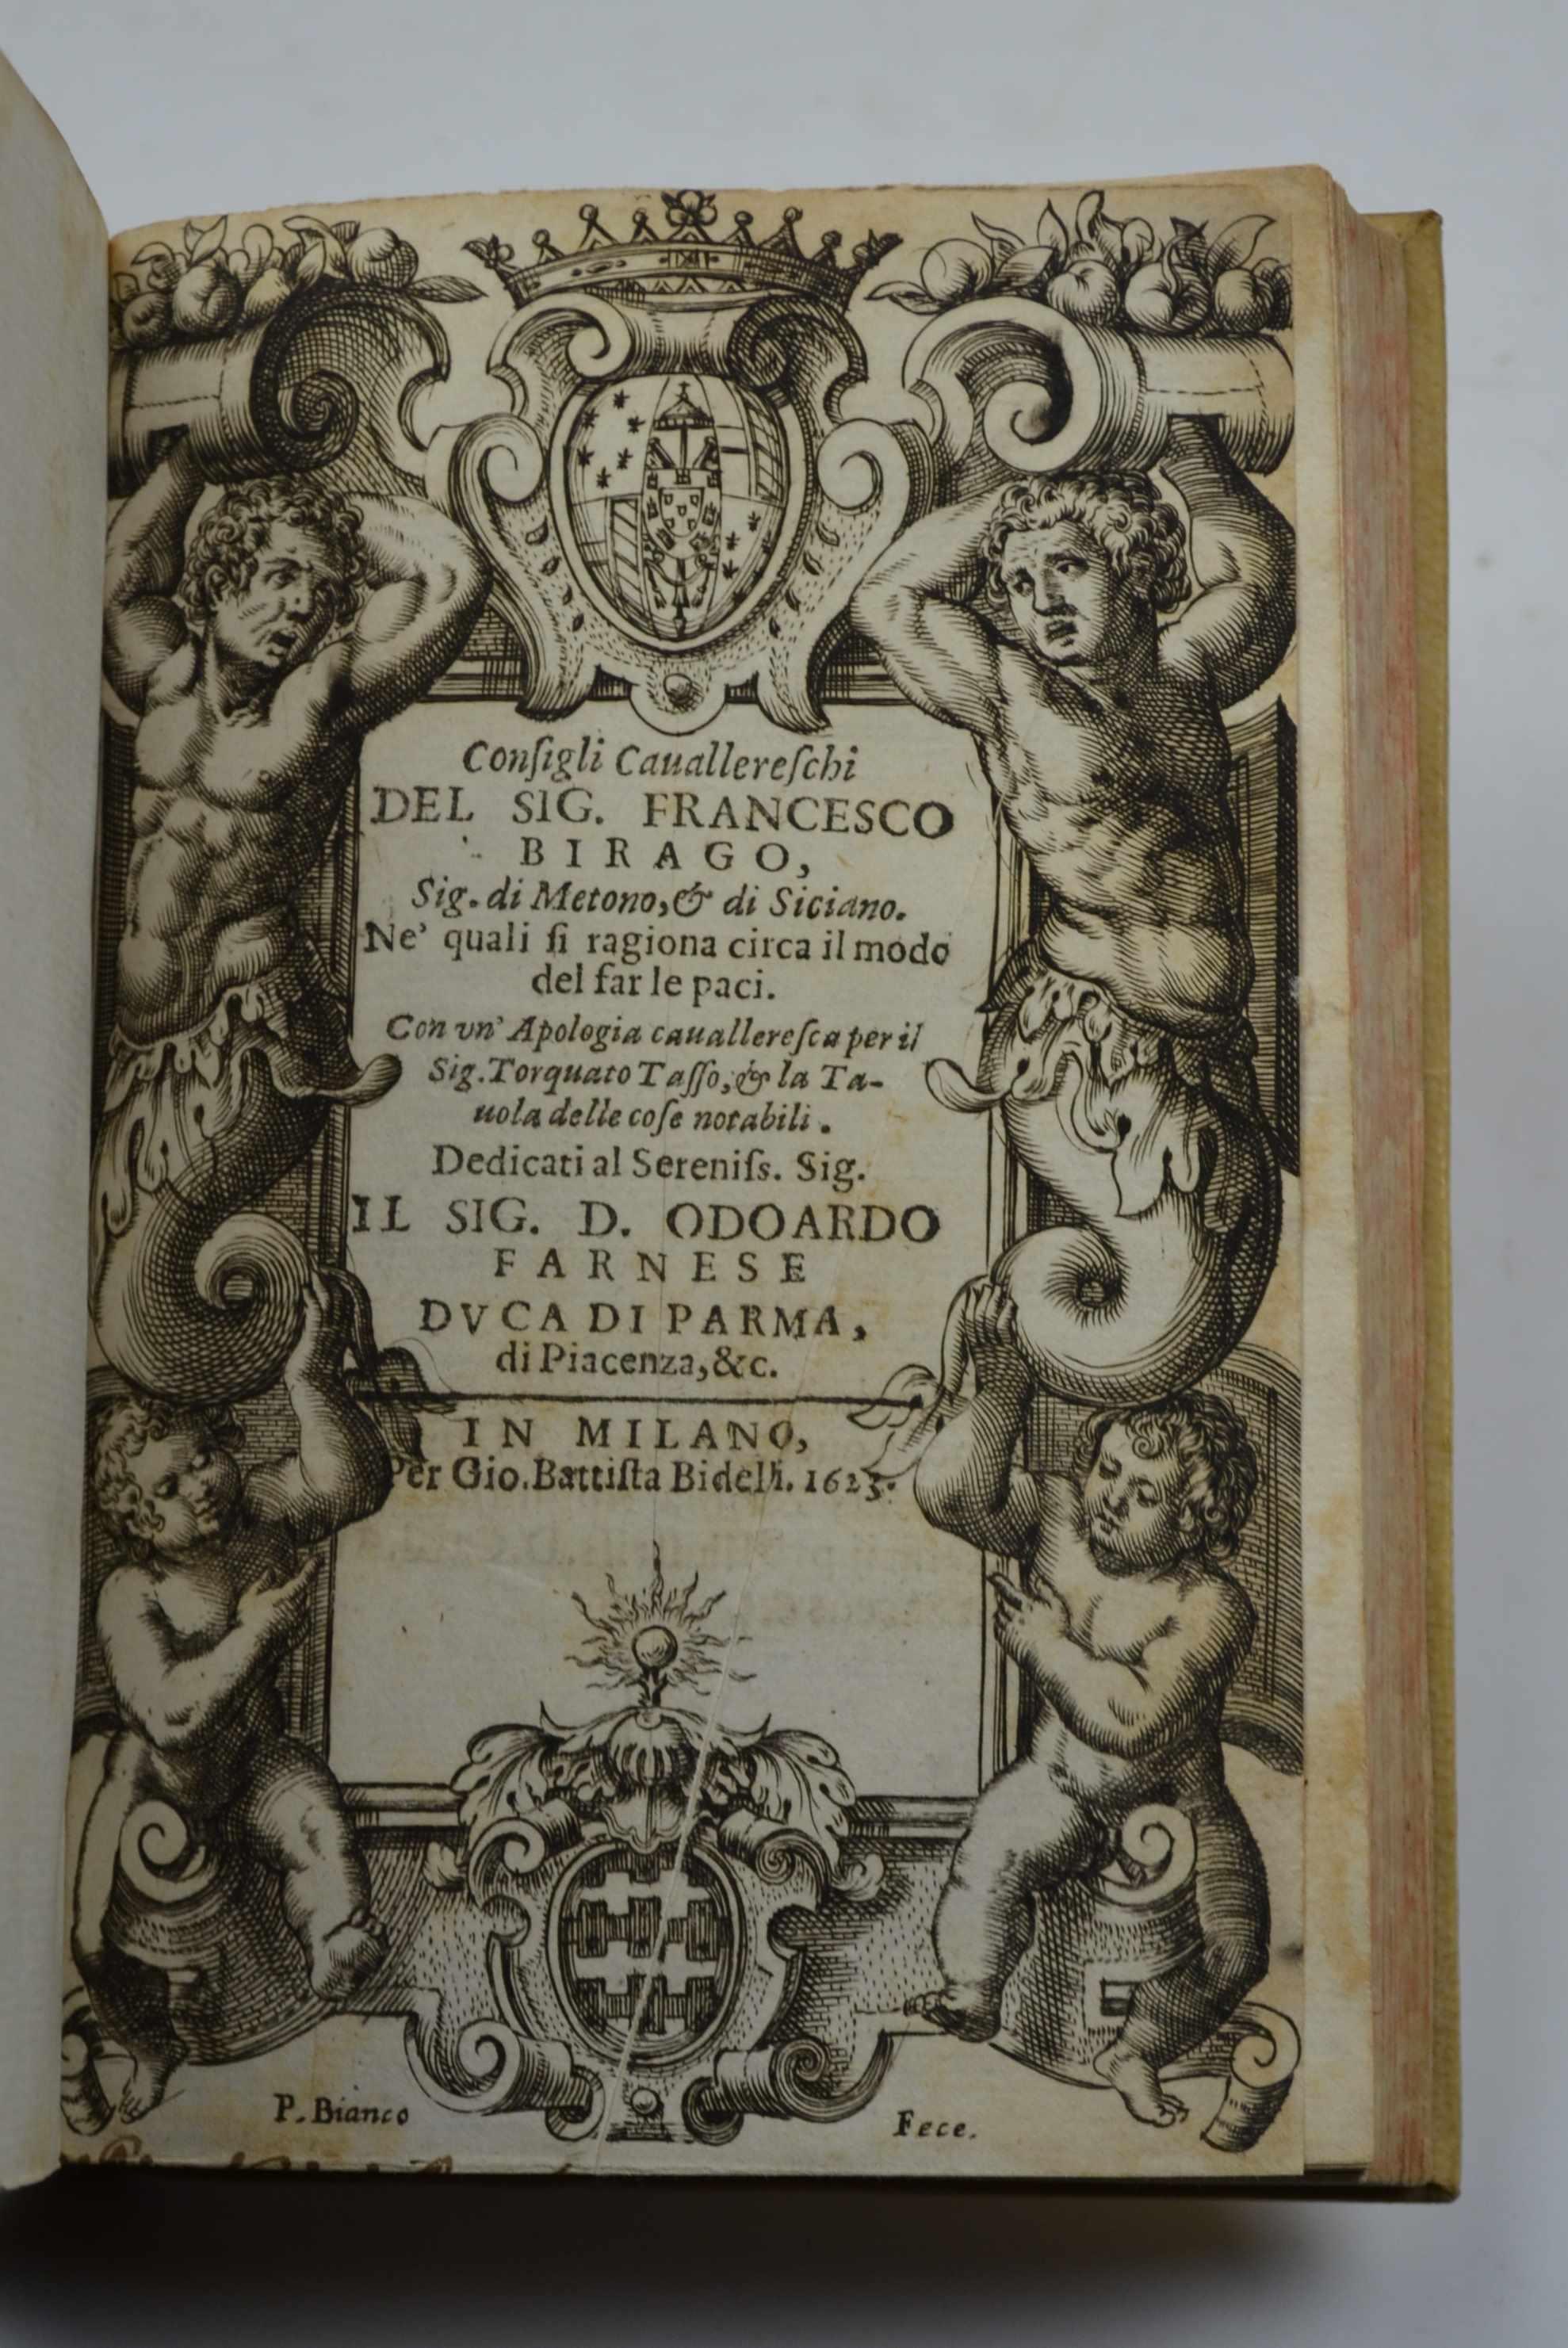 Conſigli Cauallereſchi
DEL SIG. FRANCESCO
BIRAGO,
Sig. di Metono, & di Siciano.
Ne' quali ſi ragiona circa il modo
del far le paci.
Con vn' Apologia cauallereſca per il
Sig. Torquato Taſſo, & la Ta-
uola delle coſe notabili.
Dedicati al Sereniſs. Sig.
IL SIG. D. ODOARDO
FARNESE
DVCA DI PARMA,
di Piacenza, &c.
IN MILANO,
Per Gio. Battiſta Bidelli. 1623.
P. Bianco Fece.